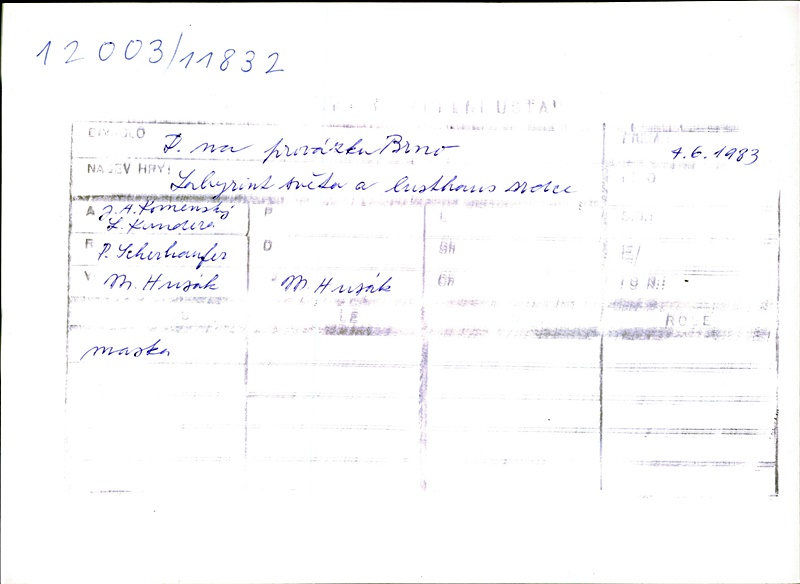 12003/11832
DIVADLO D. na provázku Brno 4.6.1983
NÁZEV HRY: Labyrint světa a lusthaus srdce
A J.A. Komenský P
L. Kundera
R P. Scherhaufer O
V M. Husák M Husák
LE ROLE
maska